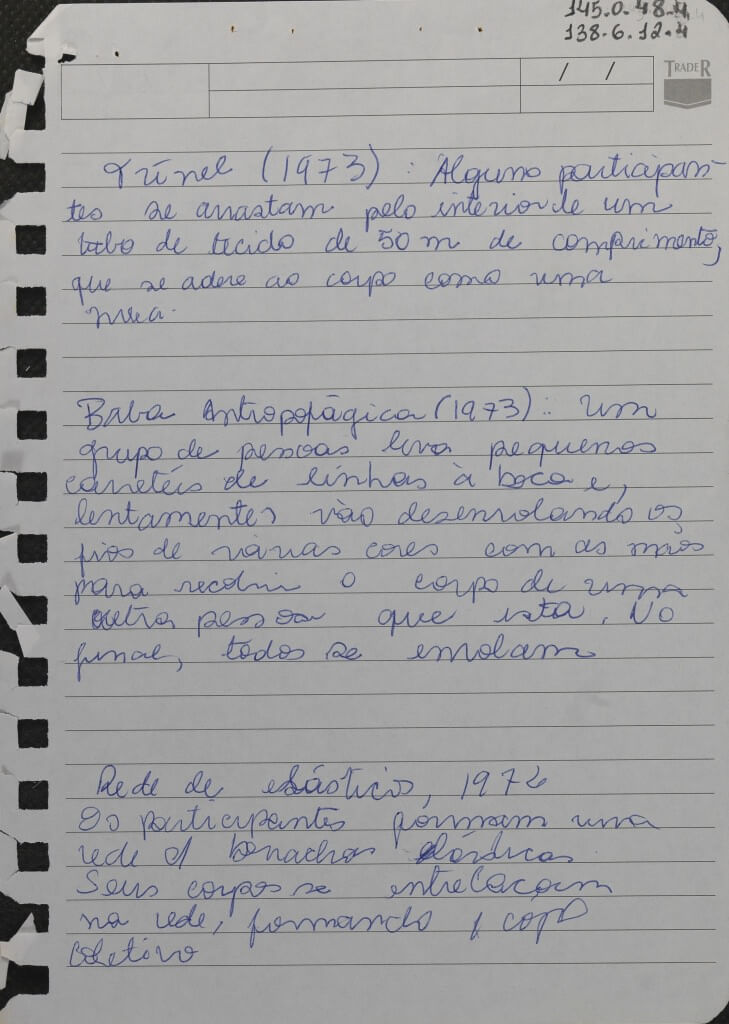 145.0.48.4
138.6.12.4
/ /
TRADER
Túnel (1973): Alguns participan-
tes se arrastam pelo interior de um
tubo de tecido de 50 m de comprimento,
que se adere ao corpo como uma
luva.
Baba Antropofágica (1973): Um
grupo de pessoas leva pequenos
carretéis de linhas à boca e,
lentamentes vão desenrolando os
fios de várias cores com as mãos
para recobrir o corpo de uma
outra pessoa que esta. No
final, todos se enrolam
Rede de elásticos, 1974
Os participantes formam uma
rede c/ borrachas elásticas
Seus corpos se entrelaçam
na rede, formando 1 corpo
coletivo